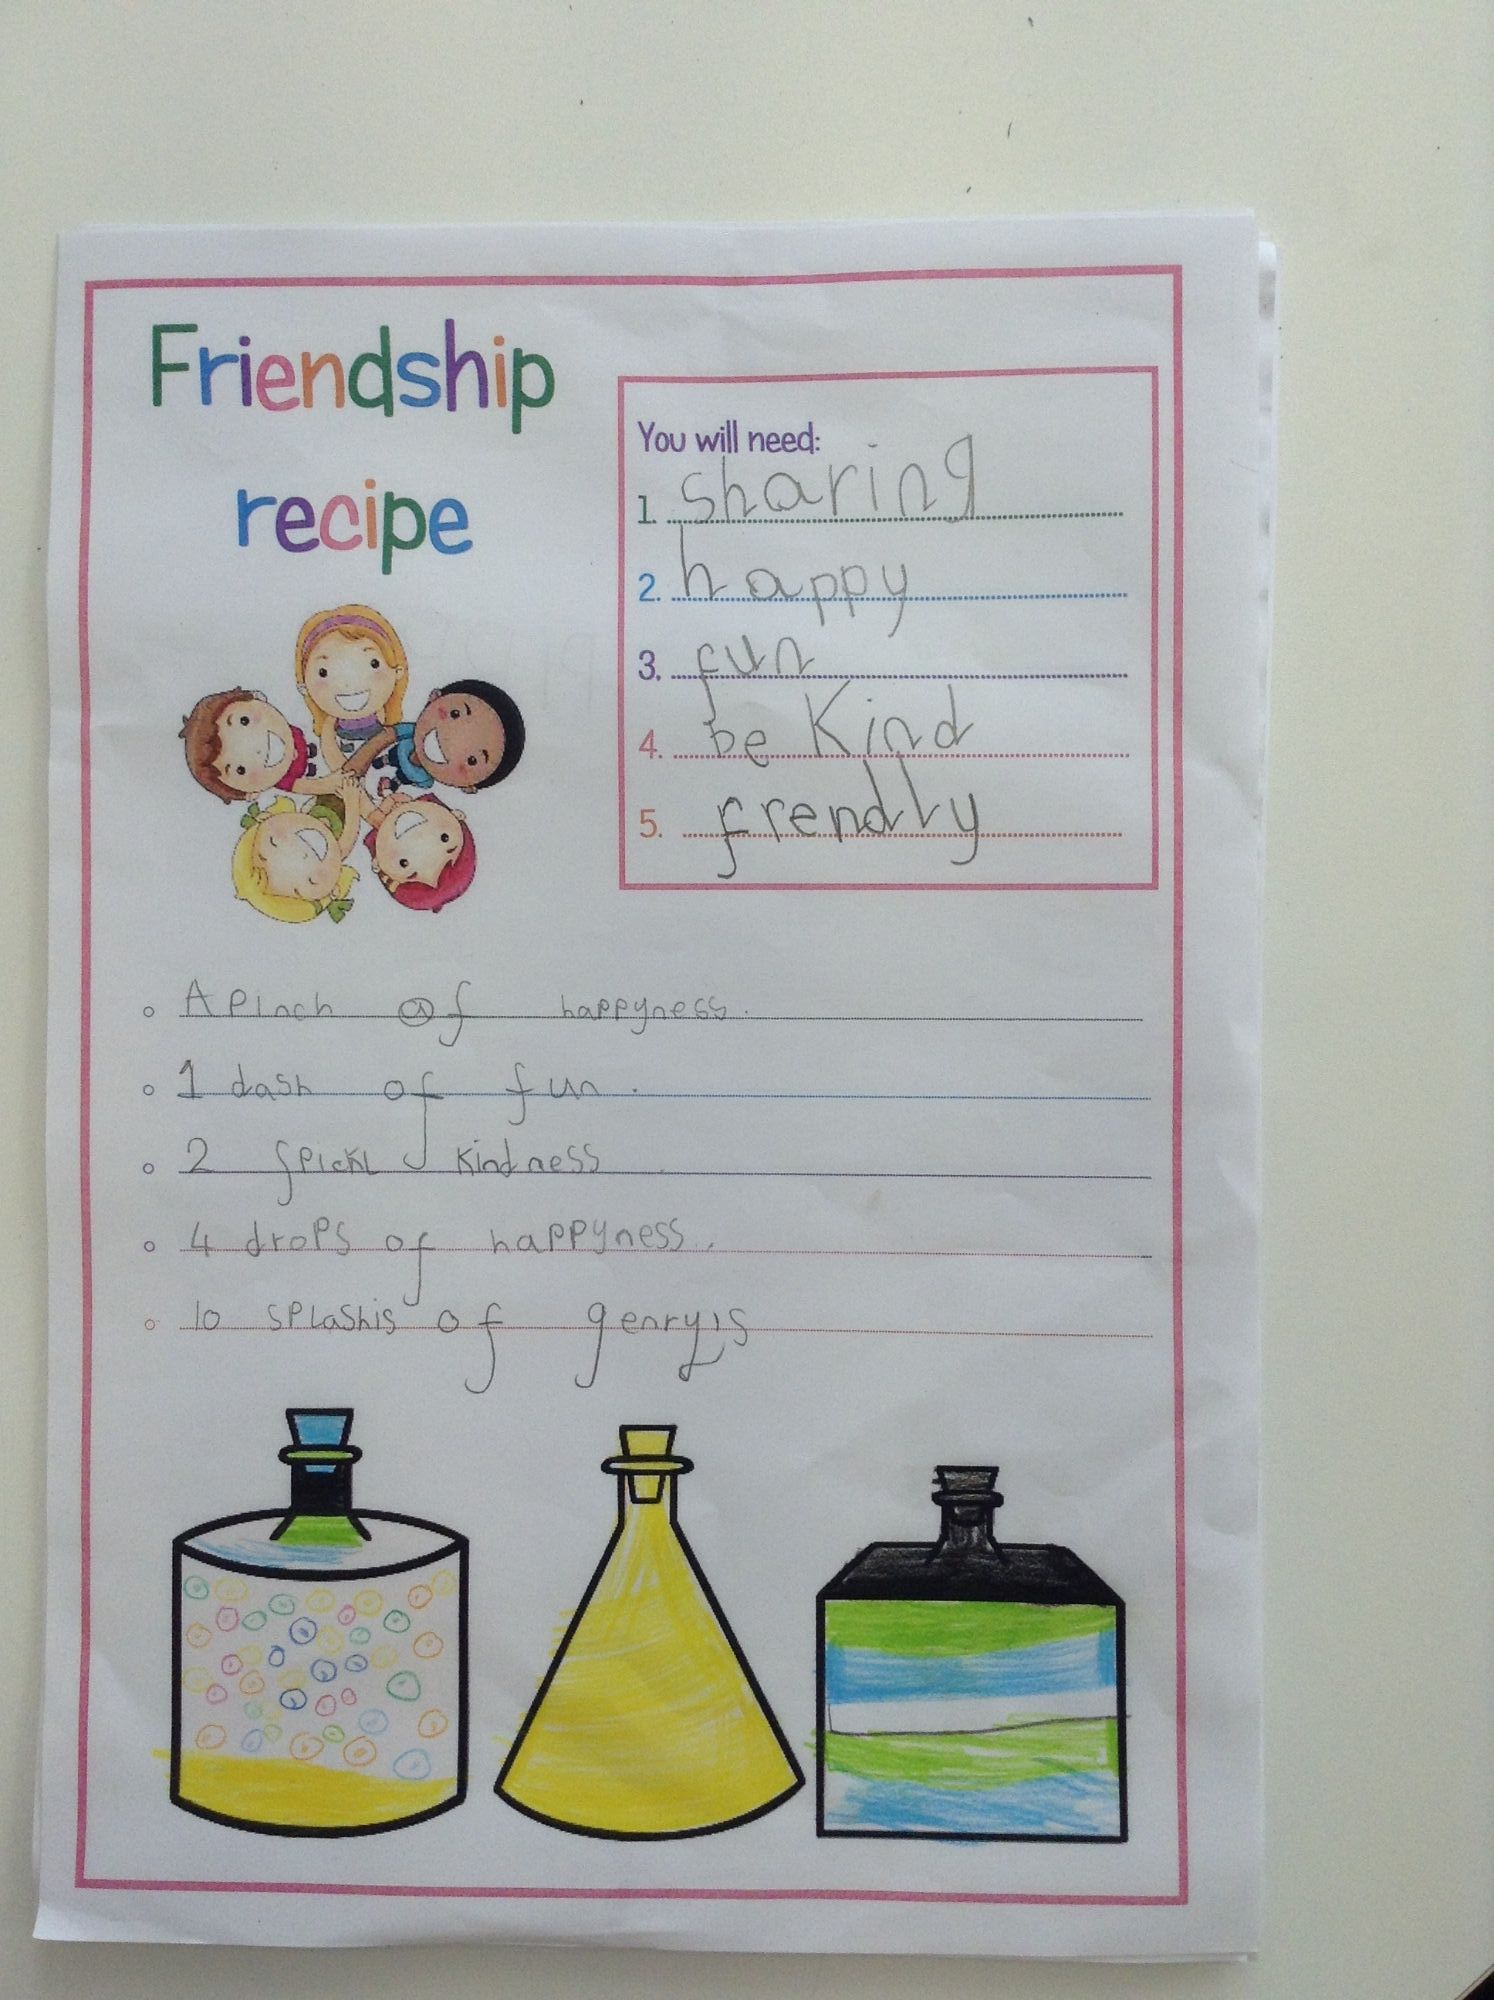 Friendship
recipe
You will need:
1. sharing
2. happy
3. fun
4. be Kind
5. frendly
A Pinch of happyness.
1 dash of fun.
2 kindness
4 drops of happyness.
10 splashis of